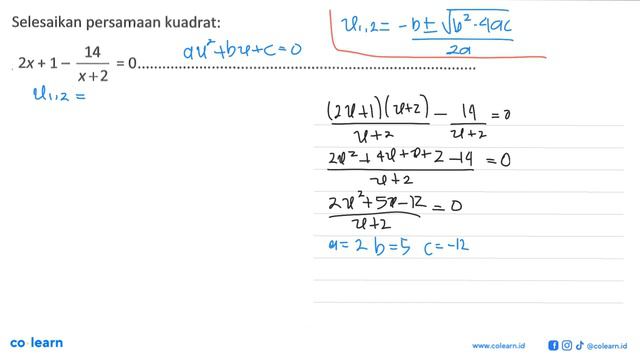 Selesaikan persamaan kuadrat:
2x + 1 − 14/(x + 2) = 0
ax² + bx + c = 0
x₁,₂ = (−b ± √(b² · 4ac))/2a
x₁,₂ =
((2x+1)(x+2))/(x+2) − 14/(x+2) = 0
(2x² + 4x + x + 2 − 14)/(x+2) = 0
(2x² + 5x − 12)/(x+2) = 0
a = 2 b = 5 c = −12
co learn
www.colearn.id
@colearn.id